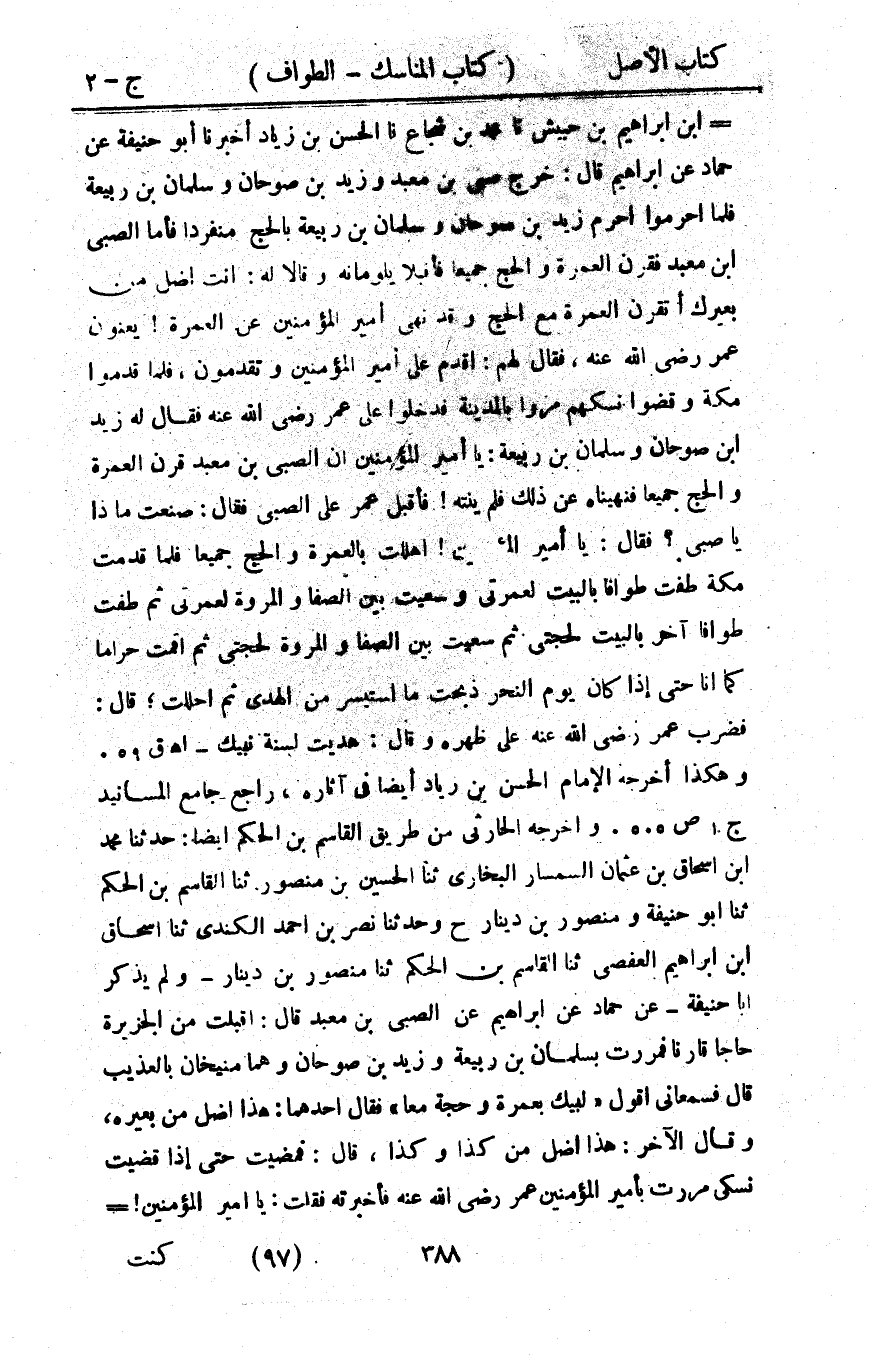 كتاب الأصل ( كتاب المناسك – الطواف ) ج – ٢
= ابن ابراهيم بن حبيش نا محمد بن شجاع نا الحسن بن زياد أخبرنا أبو حنيفة عن
حماد عن ابراهيم قال : خرج صبى بن معبد و زيد بن صوحان و سلمان بن ربيعة
فلما احرموا احرم زيد بن صوحان و سلمان بن ربيعة بالحج منفردا فأما الصبى
ابن معبد فقرن العمرة و الحج جميعا فأقبلا يلومانه و قالا له : انت اضل من
بعيرك أ تقرن العمرة مع الحج و قد نهى أمير المؤمنين عن العمرة ! يعنون
عمر رضى الله عنه ، فقال لهم : اقدم على أمير المؤمنين و تقدمون ، فلما قدموا
مكة و قضوا نسكهم مروا بالمدينة فدخلوا على عمر رضى الله عنه فقال له زيد
ابن صوحان و سلمان بن ربيعة : يا أمير المؤمنين ان الصبى بن معبد قرن العمرة
و الحج جميعا فنهيناه عن ذلك فلم ينته ! فأقبل عمر على الصبى فقال : صنعت ما ذا
يا صبى ؟ فقال : يا أمير ! اهللت بالعمرة و الحج جميعا فلما قدمت
مكة طفت طوافا بالبيت لعمرتى و سعيت بين الصفا و المروة لعمرتى ثم طفت
طوافا آخر بالبيت لحجتى ثم سعيت بين الصفا و المروة لحجتى ثم اقمت حراما
كما انا حتى إذا كان يوم النحر ذبحت ما استيسر من الهدى ثم احللت ؛ قال :
فضرب عمر رضى الله عنه على ظهره و قال : هديت لسنة نبيك – اھ ق ٥٩ .
و هكذا أخرجه الإمام الحسن بن زياد أيضا فى آثاره ، راجع جامع المسانيد
ج ١ ص ٥٠٥ . و اخرجه الحارثى من طريق القاسم بن الحكم ايضا : حدثنا محمد
ابن اسحاق بن عثمان السمسار البخارى ثنا الحسين بن منصور ثنا القاسم بن الحكم
ثنا ابو حنيفة و منصور بن دينار ح وحدثنا نصر بن احمد الكندى ثنا اسحاق
ابن ابراهيم العفصى ثنا القاسم بن الحكم ثنا منصور بن دينار – و لم يذكر
ابا حنيفة – عن حماد عن ابراهيم عن الصبى بن معبد قال : اقبلت من الجزيرة
حاجا قارنا فمررت بسلمان بن ربيعة و زيد بن صوحان و هما منيخان بالعذيب
قال فسمعانى اقول « لبيك بعمرة و حجة معا » فقال احدهما : هذا اضل من بعيره ،
و قال الآخر : هذا اضل من كذا و كذا ، قال : فمضيت حتى إذا قضيت
نسكى مررت بأمير المؤمنين عمر رضى الله عنه فأخبرته فقلت : يا امير المؤمنين ! =
٣٨٨ (٩٧) كنت